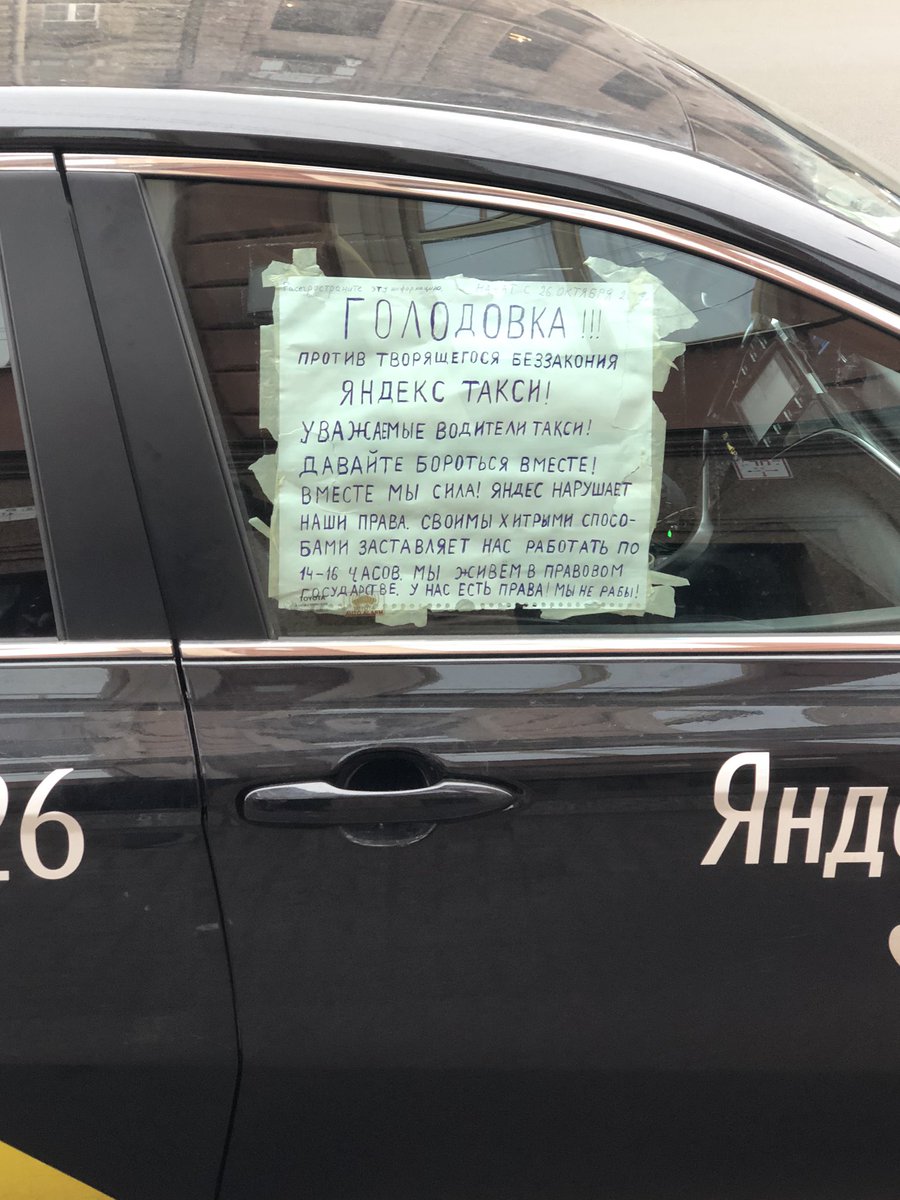 Распространите эту информацию. НАЧАТ С 26 ОКТЯБРЯ
ГОЛОДОВКА !!!
ПРОТИВ ТВОРЯЩЕГОСЯ БЕЗЗАКОНИЯ
ЯНДЕКС ТАКСИ!
УВАЖАЕМЫЕ ВОДИТЕЛИ ТАКСИ!
ДАВАЙТЕ БОРОТЬСЯ ВМЕСТЕ!
ВМЕСТЕ МЫ СИЛА! ЯНДЕС НАРУШАЕТ
НАШИ ПРАВА. СВОИМЫ ХИТРЫМИ СПОСО-
БАМИ ЗАСТАВЛЯЕТ НАС РАБОТАТЬ ПО
14-16 ЧАСОВ. МЫ ЖИВЁМ В ПРАВОВОМ
ГОСУДАРСТВЕ. У НАС ЕСТЬ ПРАВА! МЫ НЕ РАБЫ!
TOYOTA
26
Янде